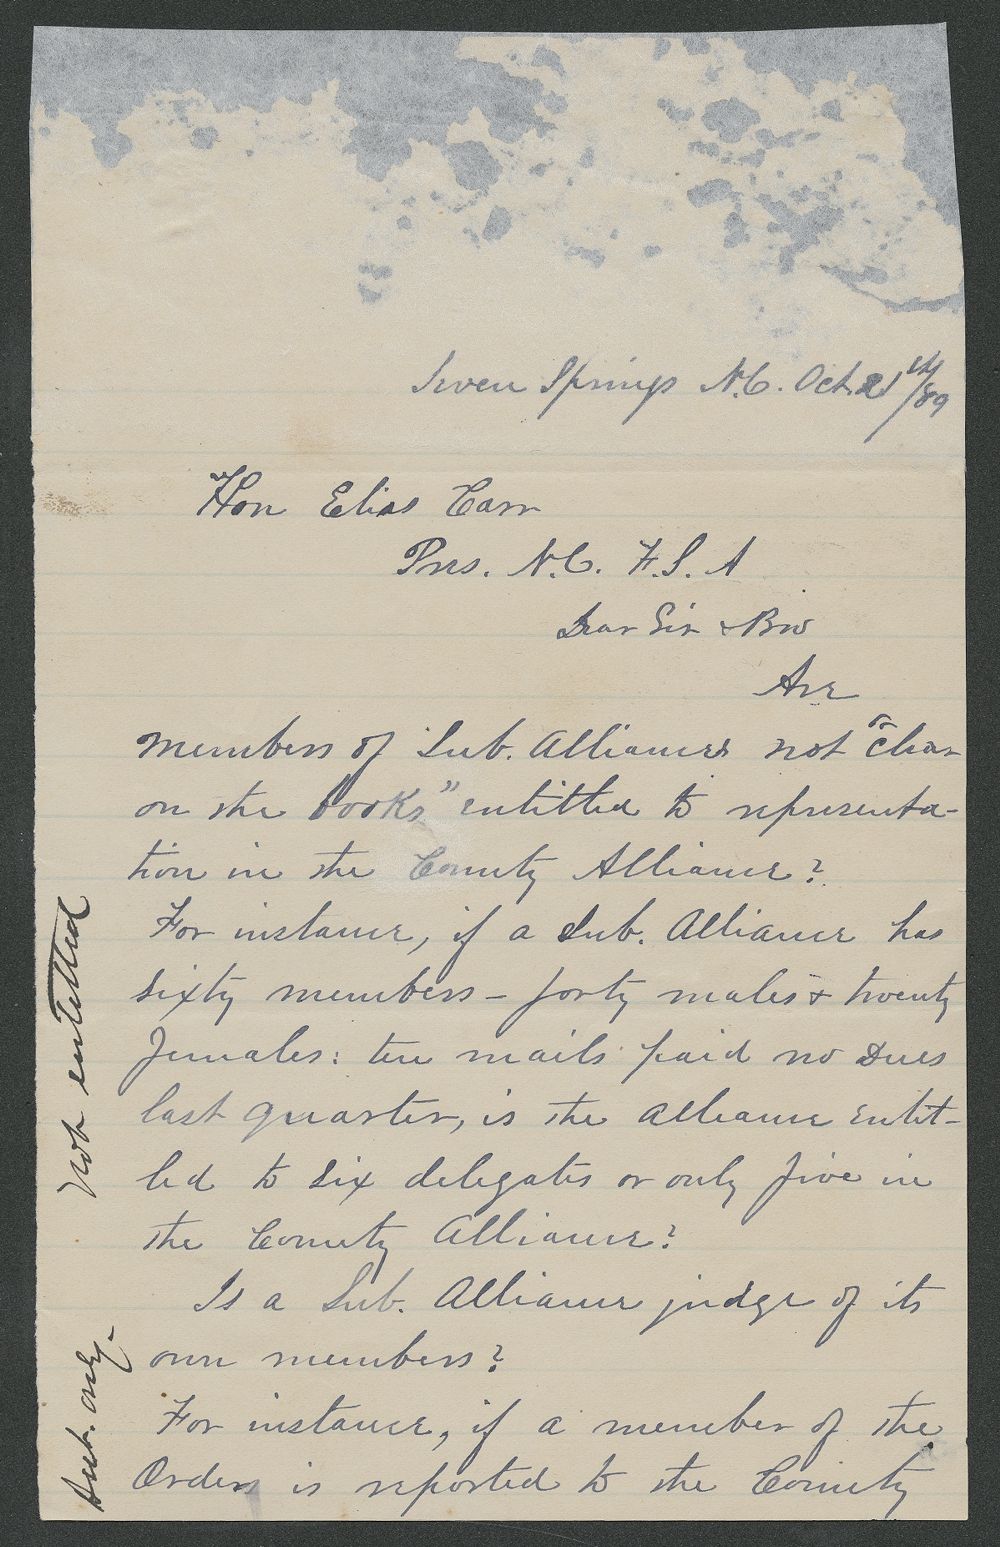 Seven Springs N.C. Oct. 21st/89
Hon Elias Carr
Pres. N.C. F.S.A
Dear Sir & Bro
Are
members of Sub. Alliances not "clear
on the books" entitled to representa-
tion in the County Alliance?
For instance, if a Sub. Alliance has
sixty members – forty males & twenty
females: ten mails paid no dues
last quarter, is the Alliance entit-
led to six delegates or only five in
the County Alliance?
Is a Sub. Alliance judge of its
own members?
For instance, if a member of the
Order is reported to the County
Not entitled
Sub. only-